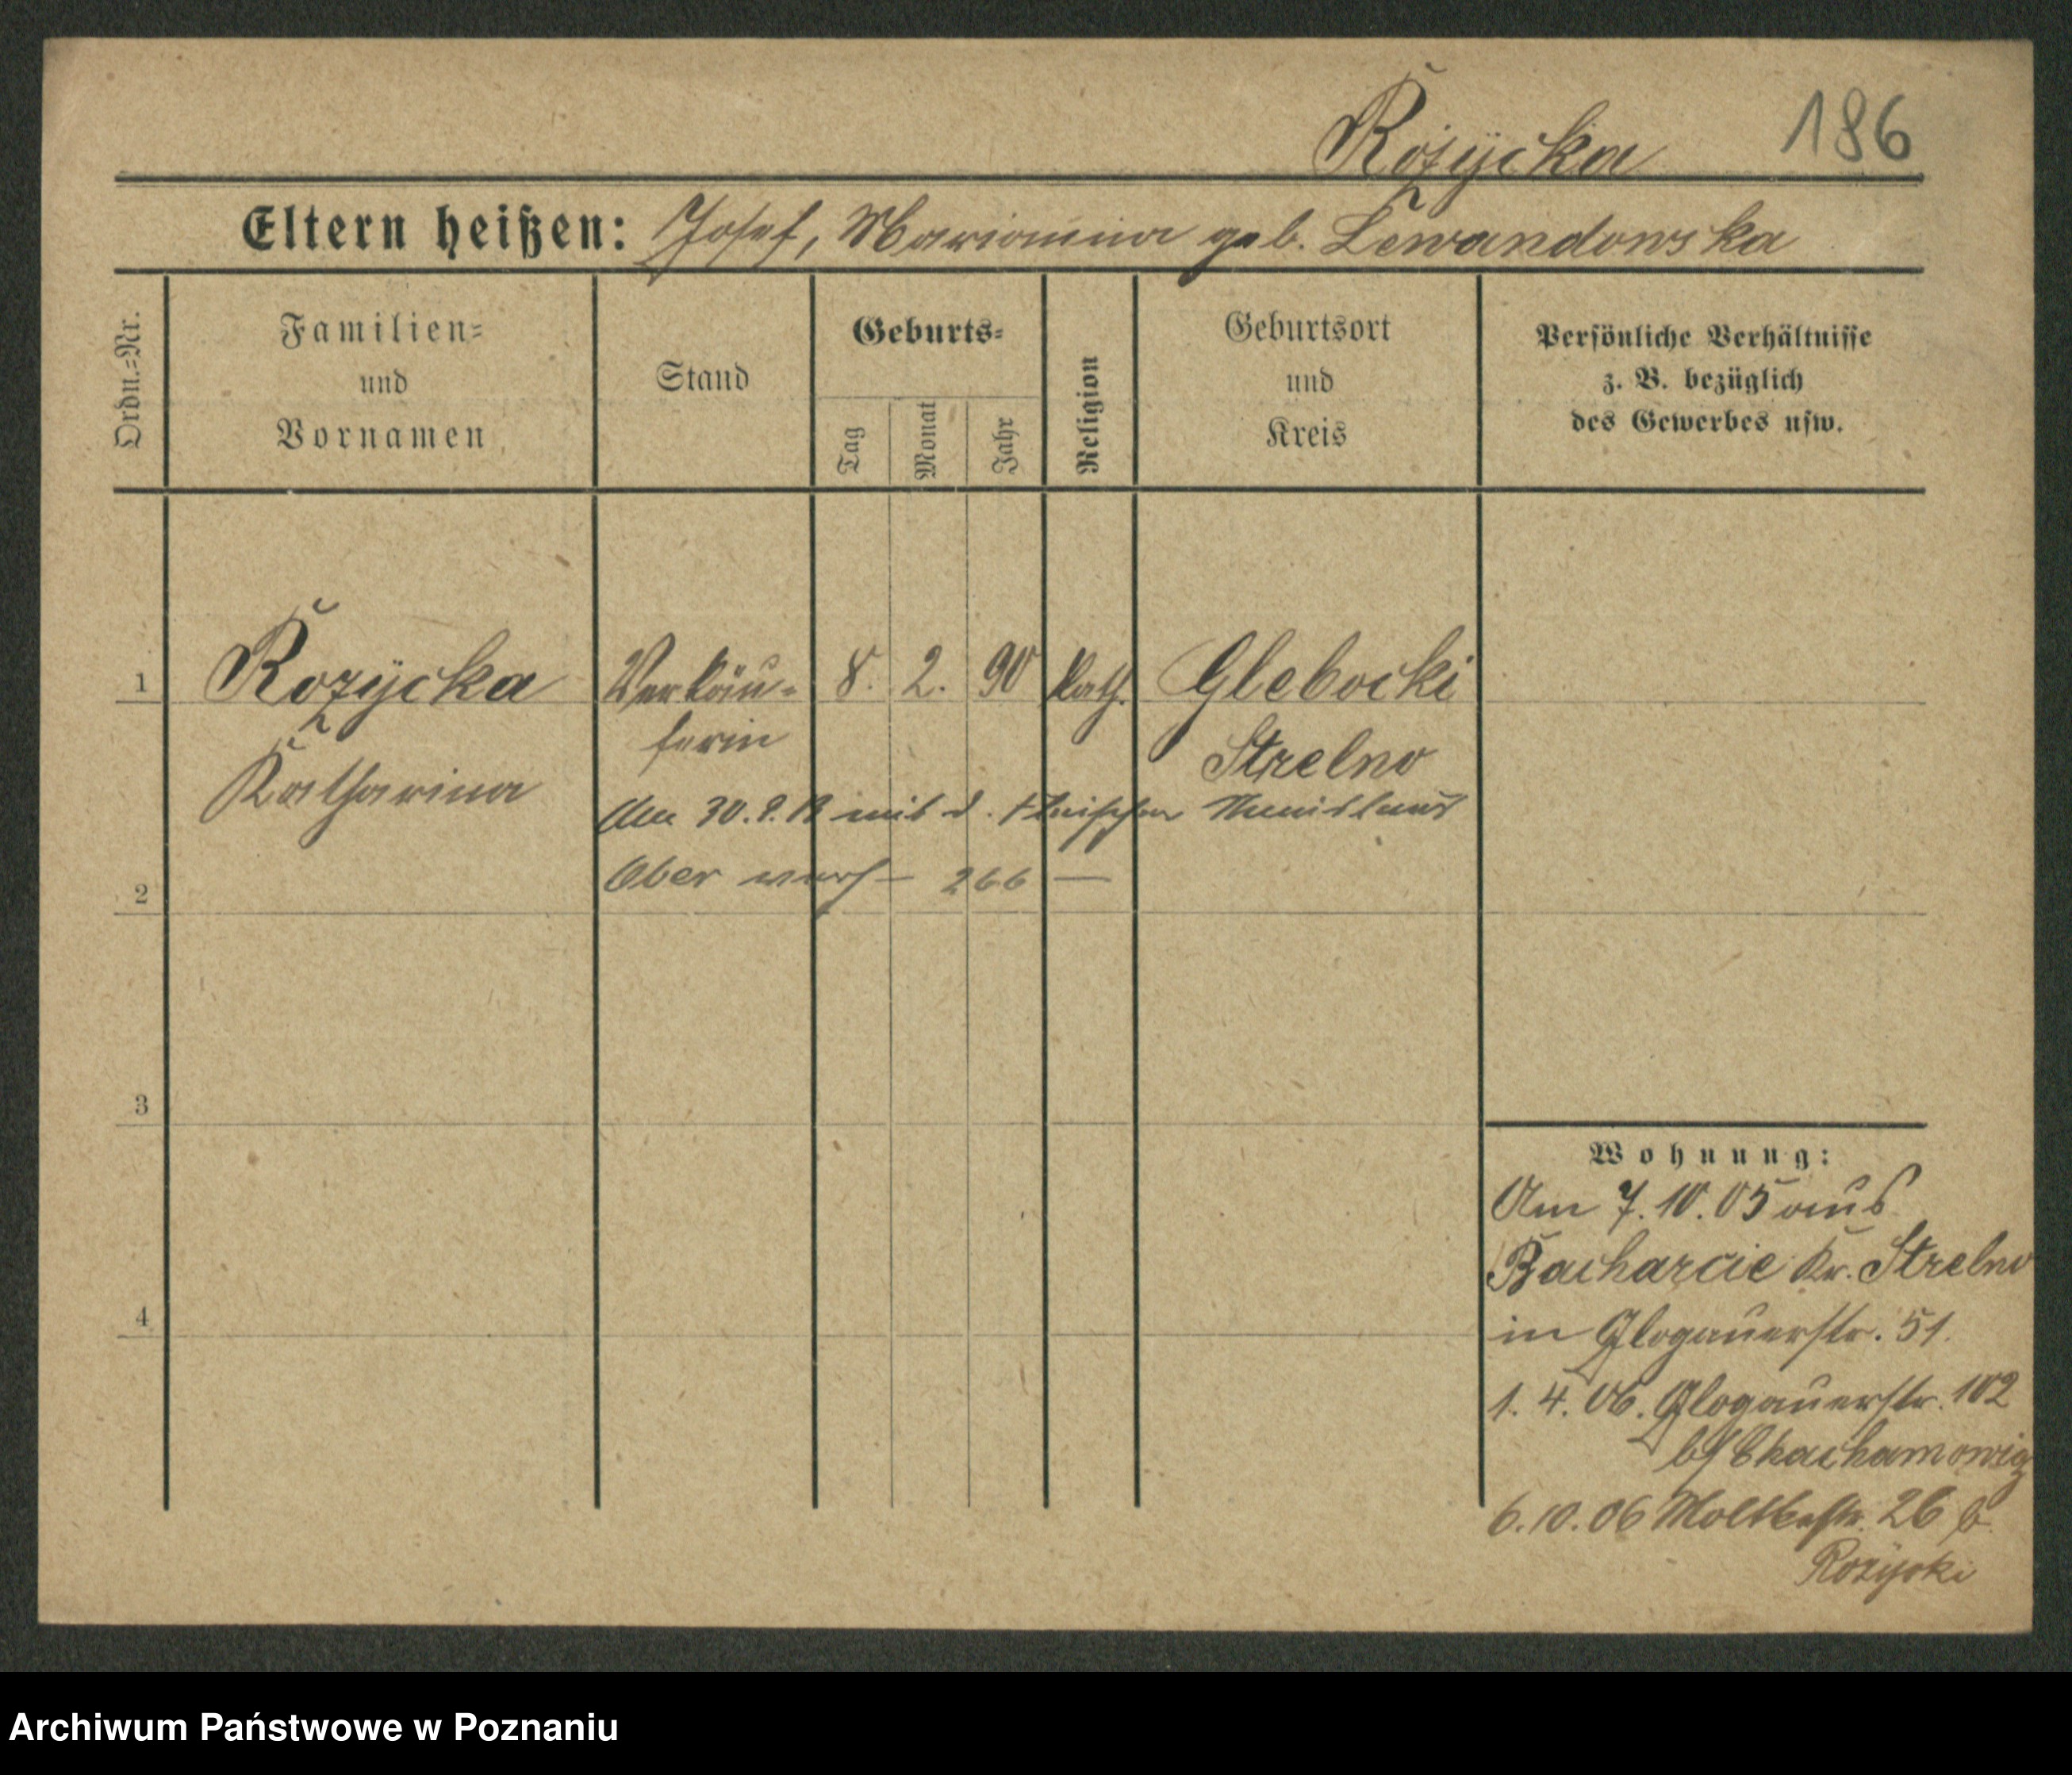 Rożycka 186
Eltern heißen: Josef, Marianna geb. Lewandowska
Ordn.=Nr.
Familien=
und
Vornamen
Stand
Geburts=
Tag
Monat
Jahr
Religion
Geburtsort
und
Kreis
Persönliche Verhältnisse
z. B. bezüglich
des Gewerbes usw.
1 Rozycka Verkäu- 8. 2. 90 kath. Glebocki
ferin Strelno
Katharina
Am 30. mit d.
2 Ober 266 —
3
4
Wohnung:
Am 7.10.05 aus
Bacharcie Kr. Strelno
in Glogauerstr. 51.
1. 4. 06. Glogauerstr. 102
b/
6.10.06 Moltkestr. 26 b.
Rozycki
Archiwum Państwowe w Poznaniu